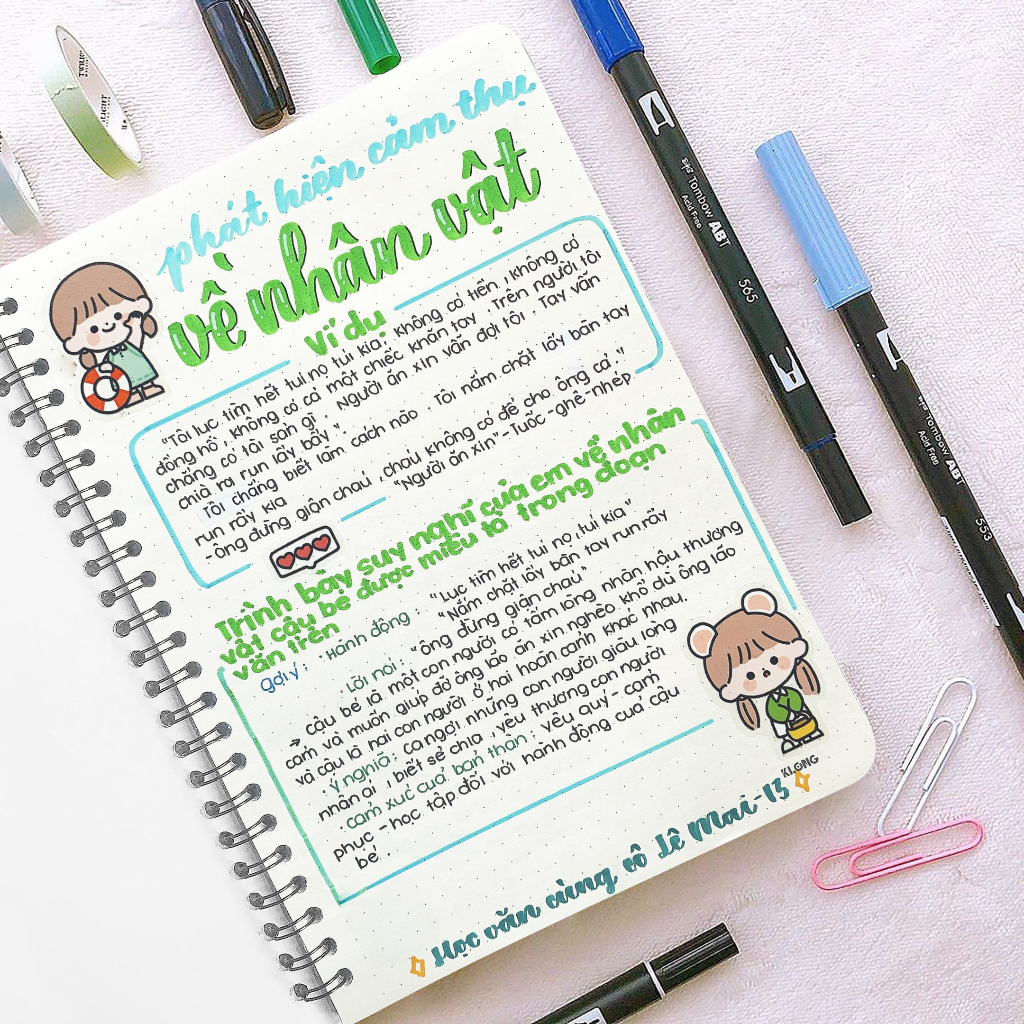 phát hiện cảm thụ
về nhân vật
Ví dụ
"Tôi lục tìm hết túi nọ túi kia, không có tiền, không có
đồng hồ, không có cả một chiếc khăn tay. Trên người tôi
chẳng có tài sản gì. Người ăn xin vẫn đợi tôi. Tay vẫn
chìa ra run lẩy bẩy".
Tôi chẳng biết làm cách nào. Tôi nắm chặt lấy bàn tay
run rẩy kia
- Ông đừng giận cháu, cháu không có để cho ông cả."
"Người ăn xin" - Tuốc - ghê - nhép
Trình bày suy nghĩ của em về nhân
vật cậu bé được miêu tả trong đoạn
văn trên
gợi ý: · Hành động: "Lục tìm hết túi nọ, túi kia"
"Nắm chặt lấy bàn tay run rẩy
· Lời nói: "ông đừng giận cháu"
→ cậu bé là một con người có tấm lòng nhân hậu thương
cảm và muốn giúp đỡ ông lão ăn xin nghèo khổ dù ông lão
và cậu là hai con người ở hai hoàn cảnh khác nhau.
· Ý nghĩa: ca ngợi những con người giàu lòng
nhân ái, biết sẻ chia, yêu thương con người
· cảm xúc của bản thân: yêu quý - cảm
phục - học tập đối với hành động của cậu
bé.
KLONG
Học văn cùng cô Lê Mai - 13
TWILIGHT
LIGHT
Tombow ABT
Acid Free
565
Tombow ABT
Acid Free
553